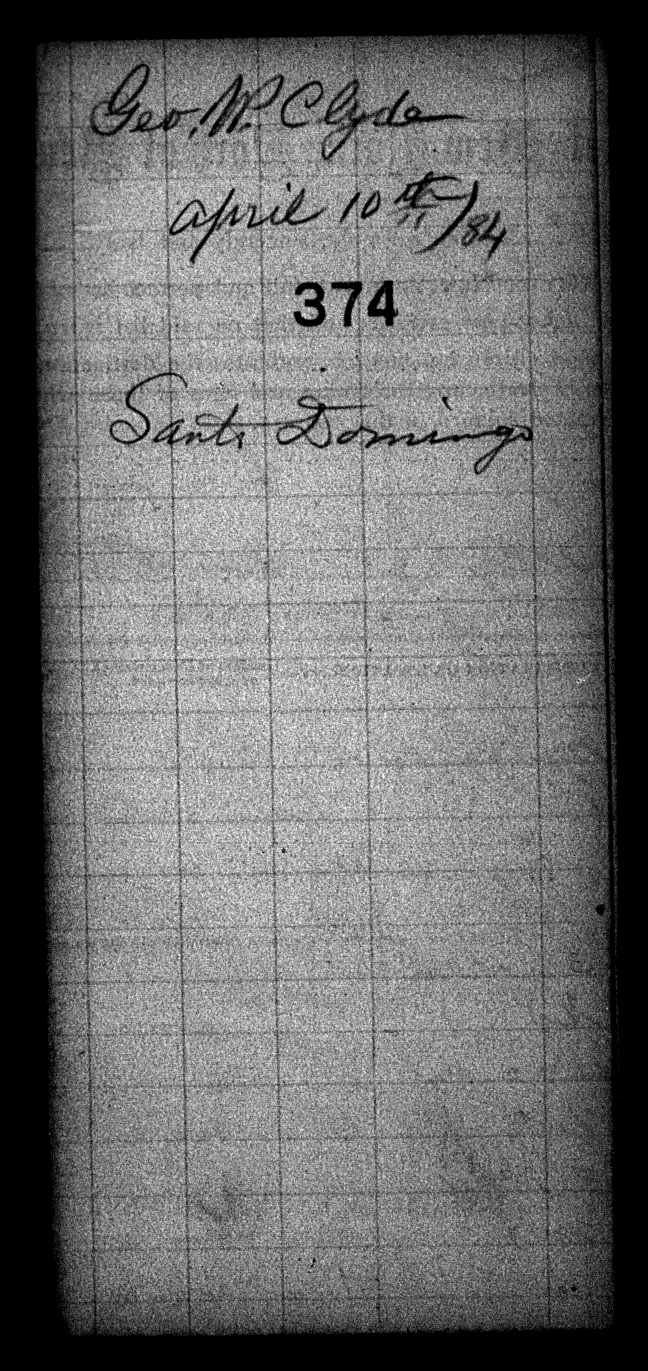 Geo. W. Clyde
April 10th/84
374
Santo Domingo